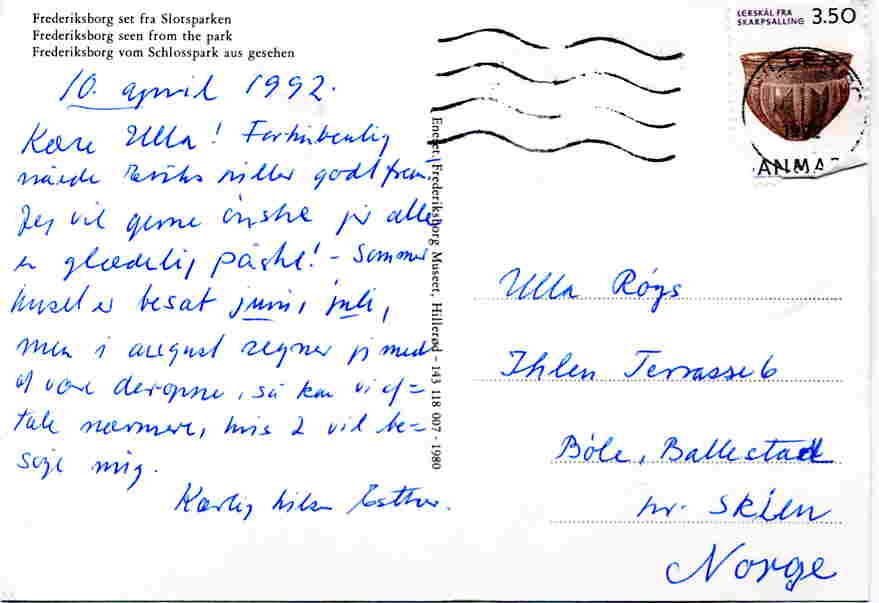 Frederiksborg set fra Slotsparken
Frederiksborg seen from the park
Frederiksborg vom Schlosspark aus gesehen
10. april 1992.
Kære Ulla! Forhåbentlig
nåede godt frem.
Jeg vil gerne ønske jer alle
en glædelig påske! - Sommer
huset er besat juni, juli,
men i august regner jeg med
at være deroppe, så kan vi af=
tale nærmere, hvis I vil be=
søge mig.
Kærlig hilsen Esther.
Eneret: Frederiksborg Museet, Hillerød - 143 118 007 - 1980
LERSKÅL FRA
SKARPSALLING
3.50
Ulla Røgs
Ihlen Terrasse 6
Bøle, Ballestad
nr. Skien
Norge